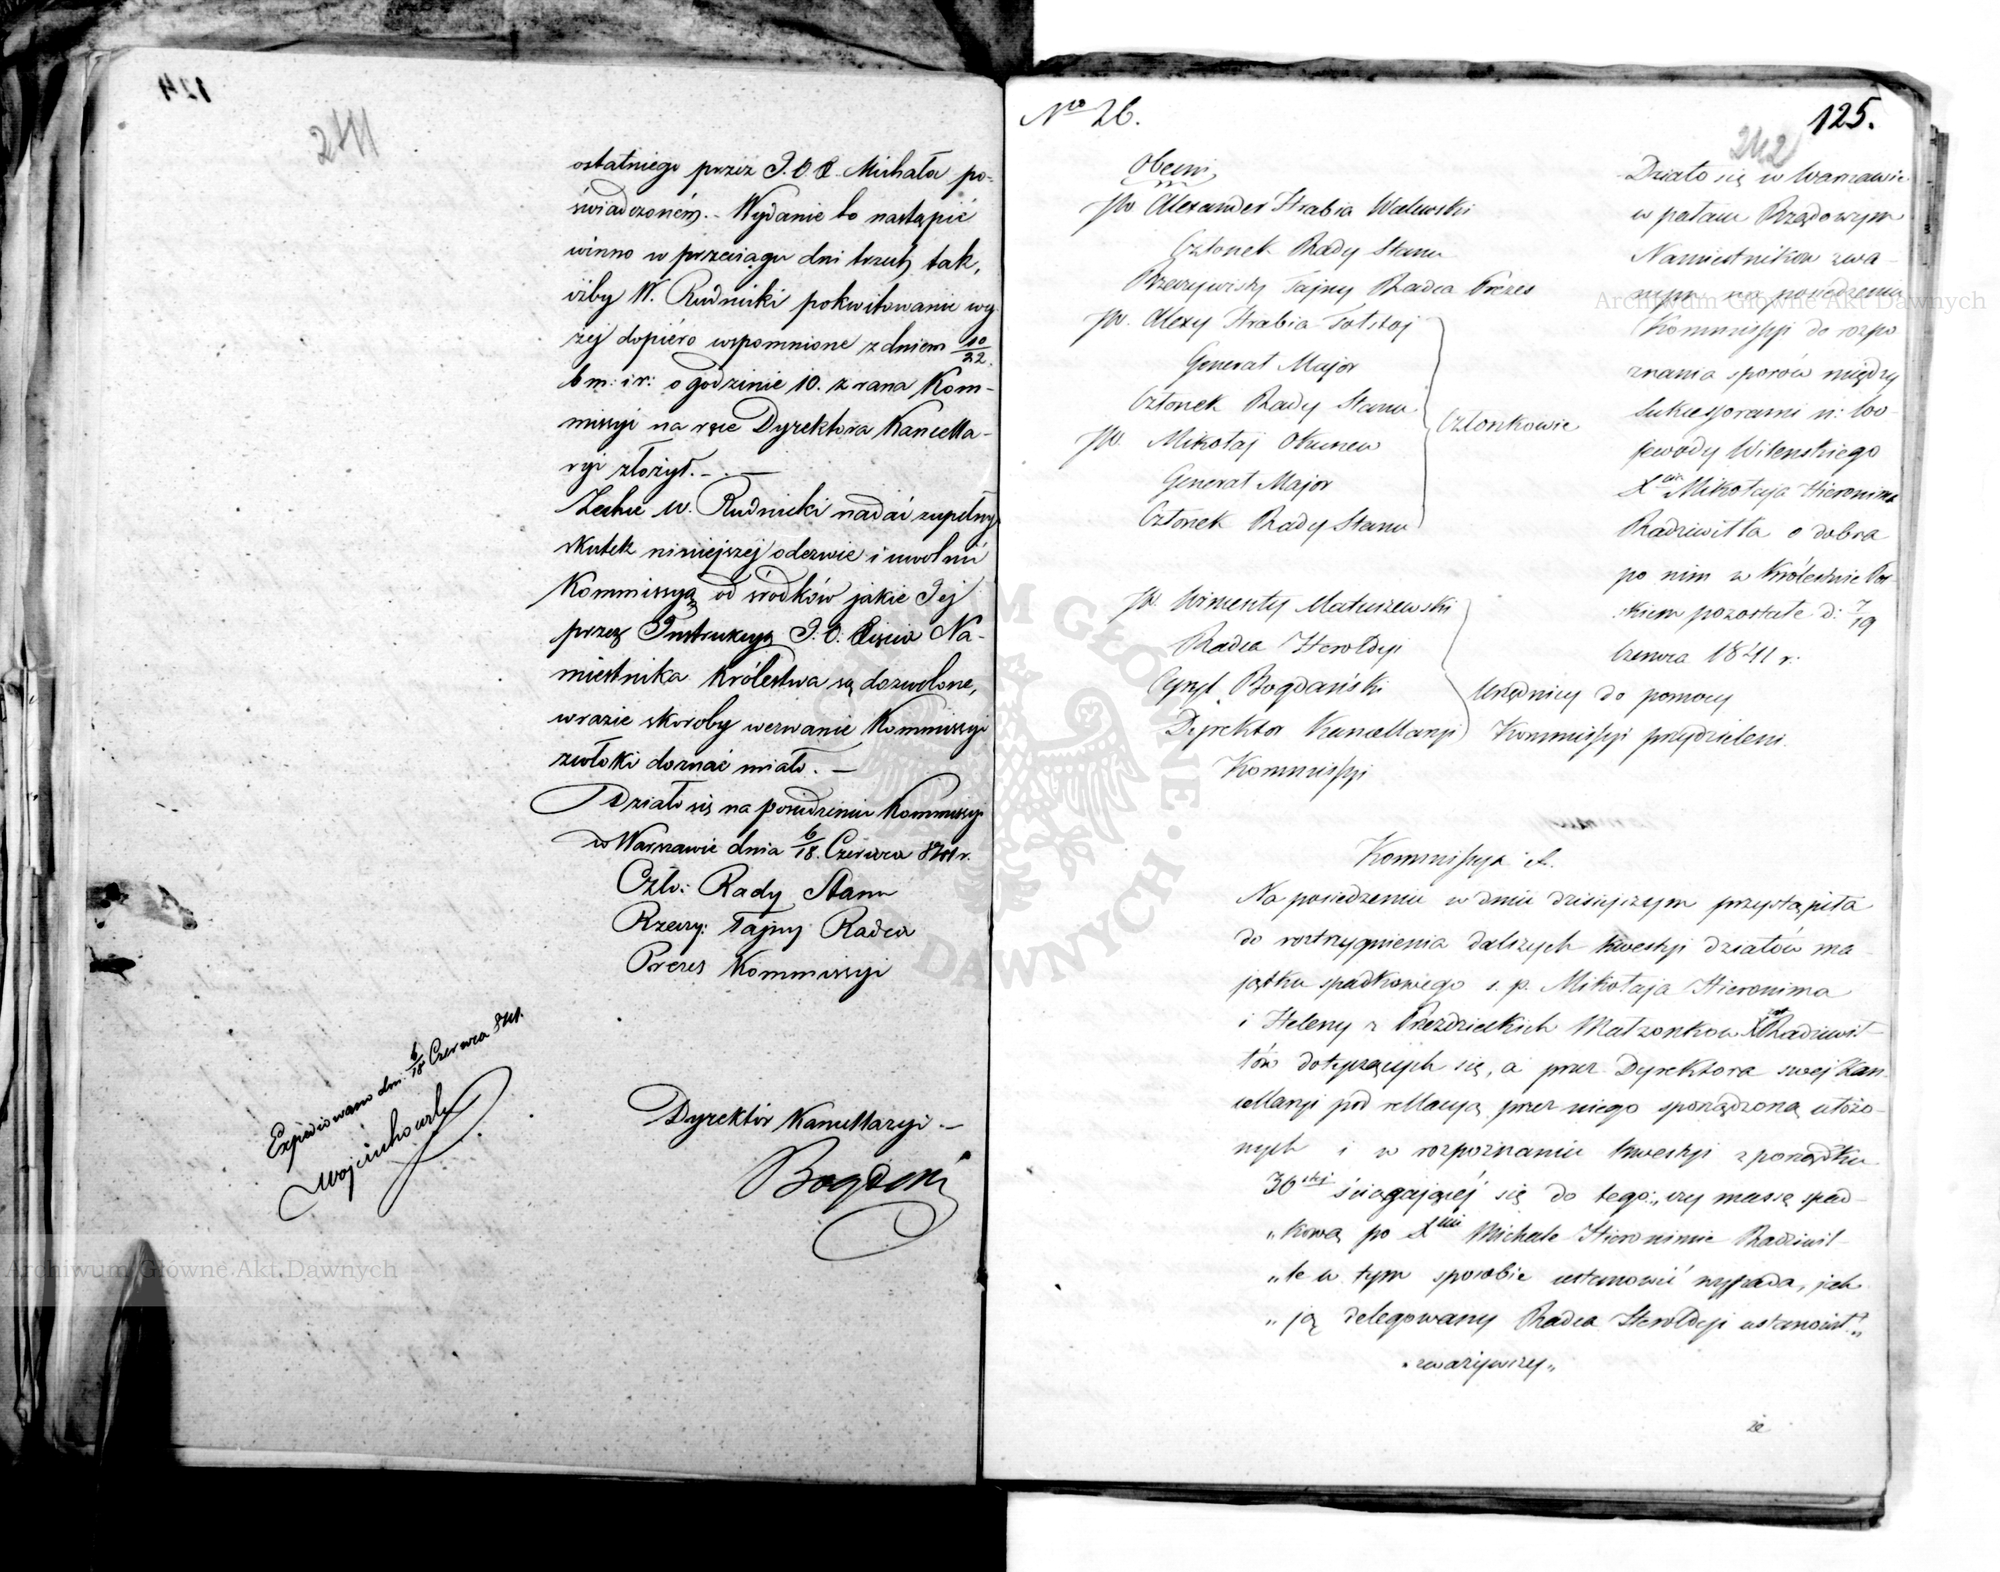 124
241
ostatniego przez J. O. X. Michała po-
świadczoném. – Wydanie to nastąpić
winno w przeciągu dni trzech tak,
iżby W. Rudnicki pokwitowanie wy
żej dopiéro wspomnione z dniem 10/22.
b m: i r: o godzinie 10. z rana Kom-
missyi na ręce Dyrektora Kancella-
ryi złożył. –
Zechce W. Rudnicki nadać zupełny
skutek niniejszej odezwie i uwolnić
Kommissyą od środków jakie Jej
przez Instrukcyą J. O. Xięcia Na-
miestnika Królestwa są dozwolone,
w razie skoroby wezwanie Kommissyi
zwłoki doznać miało. –
Działo się na posiedzeniu Kommissyi
w Warszawie dnia 6/18. Czerwca 841 r.
Czło: Rady Stanu
Rzeczy: Tajny Radca
Prezes Kommissyi
Expediowano dn. 6/18 Czerwca 841.
Wojciechowski
Dyrektór Kancellaryi. –
Bogdań
No 26.
125.
242
Obecni
JW Alexander Hrabia Walewski
Członek Rady Stanu
Rzeczywisty Tajny Radca Prezes
JW. Alexy Hrabia Tołstoj
Generał Major
Członek Rady Stanu
JW. Mikołaj Okuniew
Generał Major
Członek Rady Stanu
Członkowie
JW. Wincenty Matuszewski
Radca Heroldyi
Cyryl Bogdański
Dyrektor Kancellaryi
Kommissyi
Urzędnicy do pomocy
Kommissyi przydzieleni.
Działo się w Warszawie
w pałacu Rządowym
Namiestników zwa-
nym na posiedzeniu
Kommissyi do rozpo
znania sporów między
Sukcessorami n: Wo-
jewody Wileńskiego
Xcia Mikołaja Hieronima
Radziwiłła o dobra
po nim w Królestwie Pol-
skiem pozostałe d: 7/19
Czerwca 1841 r.
Kommissya &.
Na posiedzeniu w dniu dzisiejszym przystąpiła
do rostrzygnienia dalszych kwestyi działów ma
jątku spadkowego s. p. Mikołaja Hieronima
i Heleny z Przezdzieckich Małżonków XXt Radziwił-
łów dotyczących się, a przez Dyrektora swej Kan-
cellaryi pod rellacyą przez niego sporządzoną ułożo-
nych i w rozpoznaniu kwestyi z porządku
30stej ściągającéj się do tego: „czy massę spad-
„kową po Xciu Michale Hieronimie Radziwil-
„le w tym sposobie ustanowić wypada, jak
„ją delegowany Radca Heroldyi ustanowił?„
„zważywszy„
że
Archiwum Główne Akt Dawnych
Archiwum Główne Akt Dawnych